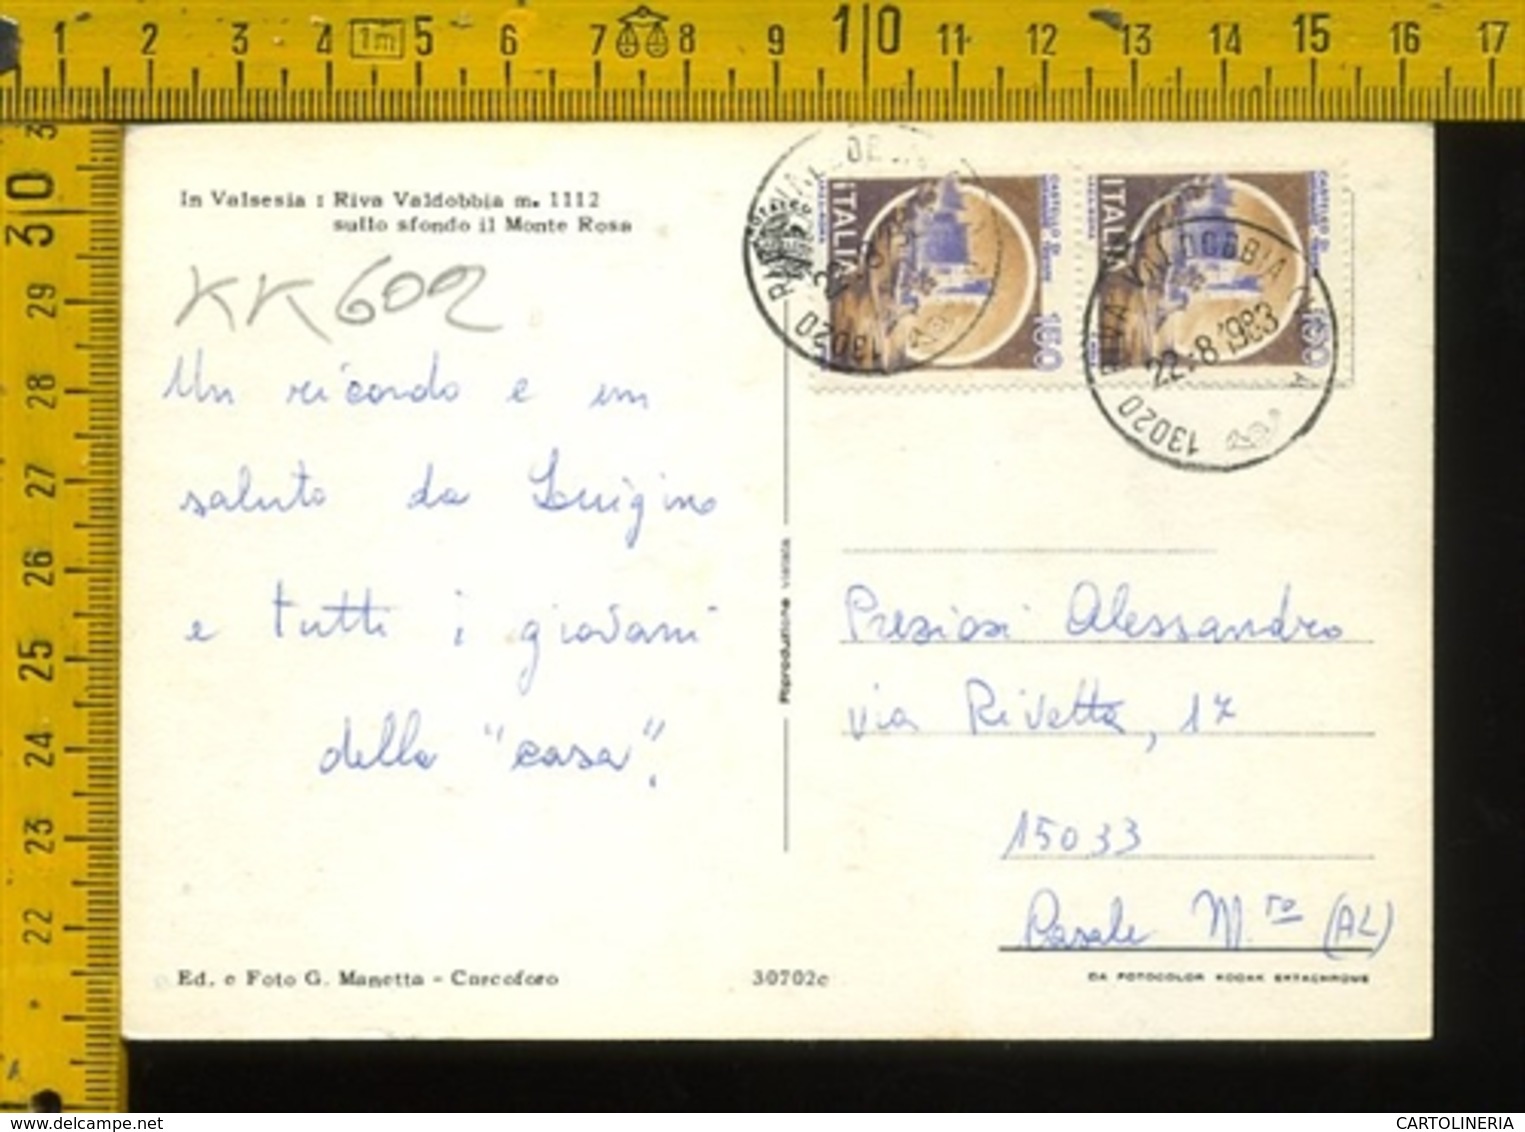 1 2 3 4 1m 5 6 7 8 9 10 11 12 13 14 15 16 17
30 29 28 27 26 25 24 23 22
In Valsesia : Riva Valdobbia m. 1112
sullo sfondo il Monte Rosa
KK602
Un ricordo e un
saluto da Luigino
e tutti i giovani
della "casa".
Ed. e Foto G. Manetta - Carcoforo
30702c
Riproduzione vietata
ITALIA
150
ITALIA
13020
13020 RIVA VALDOBBIA
22-8 1983
Preziosi Alessandro
via Rivetta, 17
15033
Casale M.to (AL)
DA FOTOCOLOR KODAK EKTACHROME
CARTOLINERIA